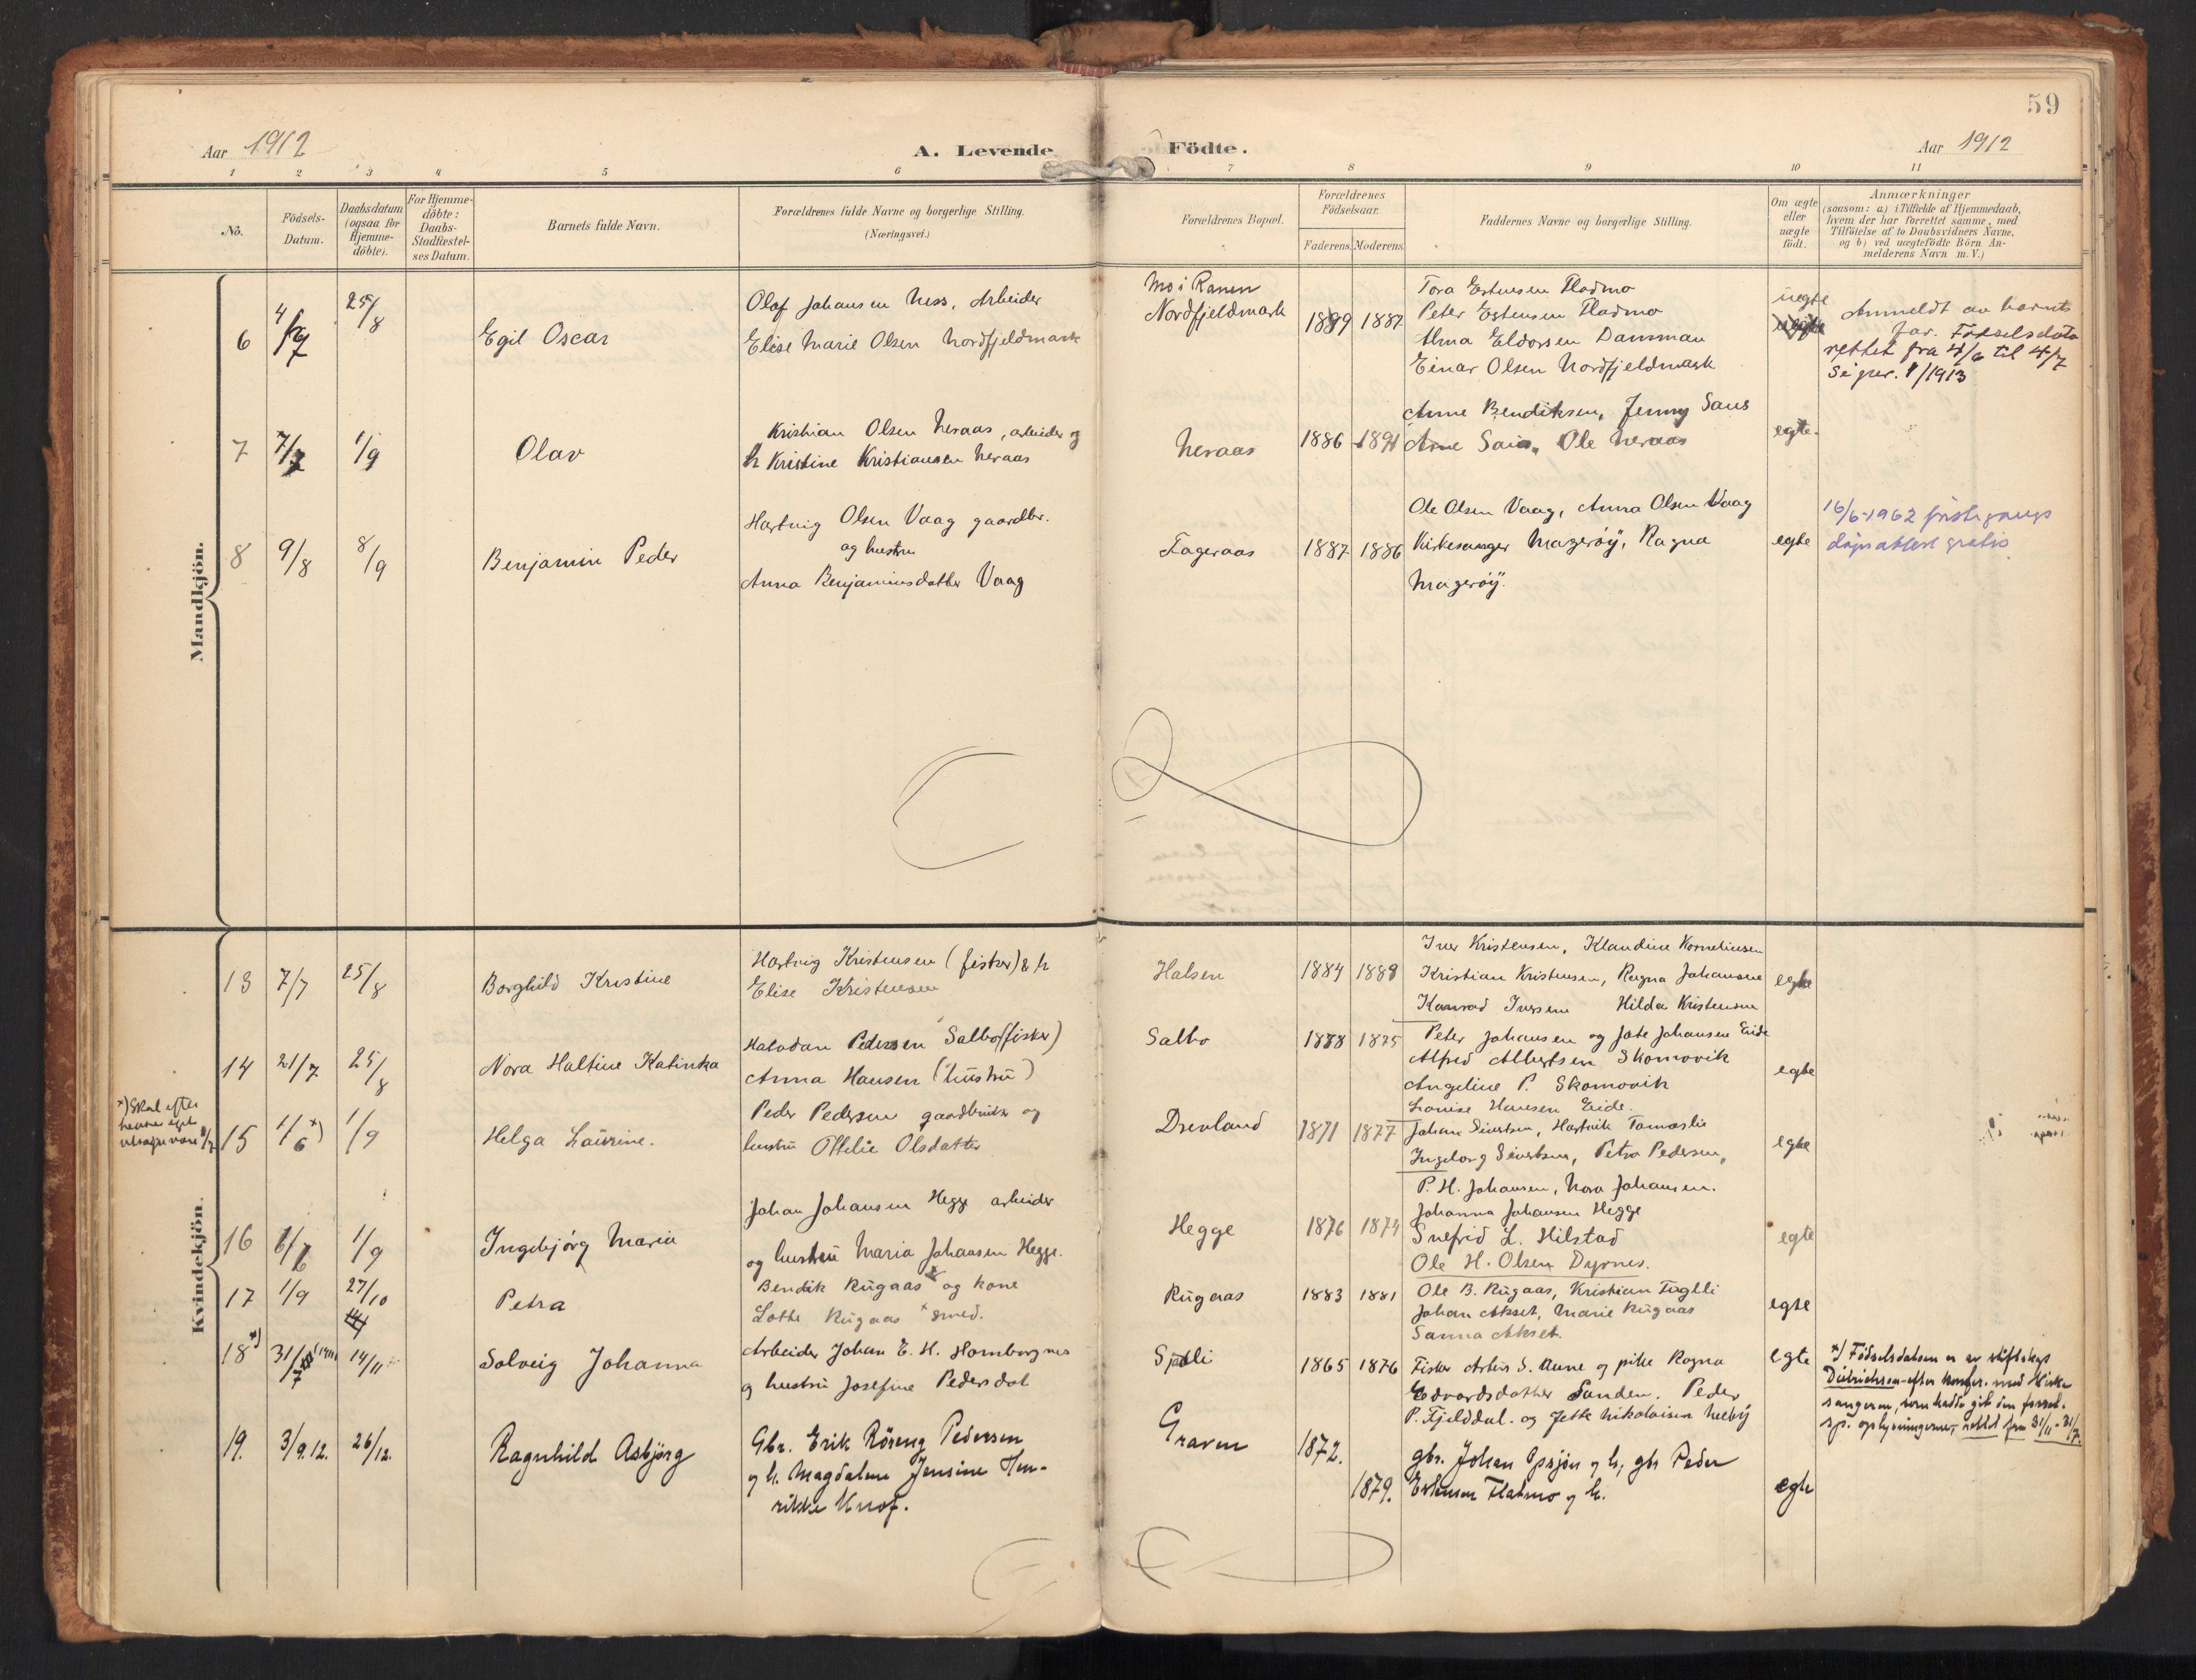 59
Aar 1912
A. Levende Födte.
Aar 1912
1 2 3 4 5 6 7 8 9 10 11
No.
Födsels-
Datum.
Daabsdatum
(ogsaa for
Hjemme-
döbte).
For Hjemme-
döbte:
Daabs-
Stadfæstel-
ses Datum.
Barnets fulde Navn.
Forældrenes fulde Navne og borgerlige Stilling.
(Næringsvei.)
Forældrenes Bopæl.
Forældrenes
Födselsaar.
Faderens. Moderens.
Faddernes Navne og borgerlige Stilling.
Om ægte
eller
uægte
födt.
Anmærkninger
(saasom: a) i Tilfælde af Hjemmedaab,
hvem der har forrettet samme, med
Tilföielse af to Daabsvidners Navne,
og b) ved uægtefödte Börn An-
melderens Navn m.V.)
Mandkjön.
6 4/7 25/8
Egil Oscar
Olaf Johansen Ness, Arbeider
Elise Marie Olsen Nordfjeldmark
Mo i Ranen
Nordfjeldmark
1889 1887
Tora Estensen Fladmo
Peter Estensen Fladmo
Alma Eldorsen Damman
Einar Olsen Nordfjeldmark
uegte
Anmeldt av barnets
far. Födselsdato
rettet fra 4/6 til 4/7
Se jnr. 1/1913
7 7/7 1/9
Olav
Kristian Olsen Neraas, arbeider og
h Kristine Kristiansen Neraas
Neraas
1886 1891
Anne Bendiksen, Jenny Saus
Arne Saus, Ole Neraas
egte.
8 9/8 8/9
Benjamin Peder
Hartvig Olsen Vaag gaardbr.
og hustru
Anna Benjaminsdatter Vaag
Fageraas
1887 1886
Ole Olsen Vaag, Anna Olsen Vaag
Kirkesanger Magerøÿ, Ragna
Magerøÿ.
egte
16/6-1962 förstegangs
dåpsattest gratis
Kvindekjön.
13 7/7 25/8
Borghild Kristine
Hartvig Kristensen (fisker) & h
Elise Kristensen
Halsen
1884 1888
Iver Kristensen, Klaudine Korneliusen
Kristian Kristensen, Ragna Johansene
Konrad Iversen Hilda Kristensen
egte
14 21/7 25/8
Nora Haltine Katinka
Halvdan Pedersen Salbo (fisker)
Anna Hansen (hustru)
Salbo
1888 1875
Peter Johansen og Jate Johansen Eide
Alfred Albertsen Skomovik
Angeline P. Skomovik
Louise Hansen Eide.
egte
x) Skal efter
hennes eget
utsagn være 8/7
15 1/6 x) 1/9
Helga Laurine.
Peder Pedersen gaardbruker og
hustru Ottelie Olsdatter
Drevland
1871 1877
Johan Sivertsen, Hartvik Tomaslie
Ingeborg Sivertsen, Petra Pedersen,
P. H. Johansen, Nora Johansen.
egte
16 6/6 1/9
Ingebjörg Maria
Johan Johansen Hegge arbeider
og hustru Maria Johansen Hegge.
Hegge
1876 1874
Johanna Johansen Hegge
Snefrid L. Hilstad
Ole H. Olsen Dyrnes.
egte
17 1/9 27/10
Petra
Bendik Rugaas x og kone
Lotte Rugaas x smed.
Rugaas
1883 1881
Ole B. Rugaas, Kristian Fuglli
Johan Akset, Marie Rugaas
Sanna Akset.
egte
18 x) 31/7 14/11
Solveig Johanna
Arbeider Johan E. H. Hornborgnes
og hustru Josefine Pedersdal
Sjøtli
1865 1876
Fisker Artur S. Aune og pike Ragna
Edvardsdatter Sanden. Peder
P. Fjelddal. og Jette Nikolaisen Neeby
egte
x) Födselsdatoen er av stiftskap
Dietrichson efter konfer. med Kirke
sangeren, som hadde git den forret.
sp. oplysningerne, rettet fra 31/11 - 31/7.
19. 3/9.12. 26/12.
Ragnhild Asbjörg
Gbr. Erik Röreng Pedersen
og h. Magdalene Jensine Hen-
rikke Knof.
Graven
1872.
1879.
gbr. Johan Opsjön og h, gbr Peder
Estensen Flatmo og h.
egte